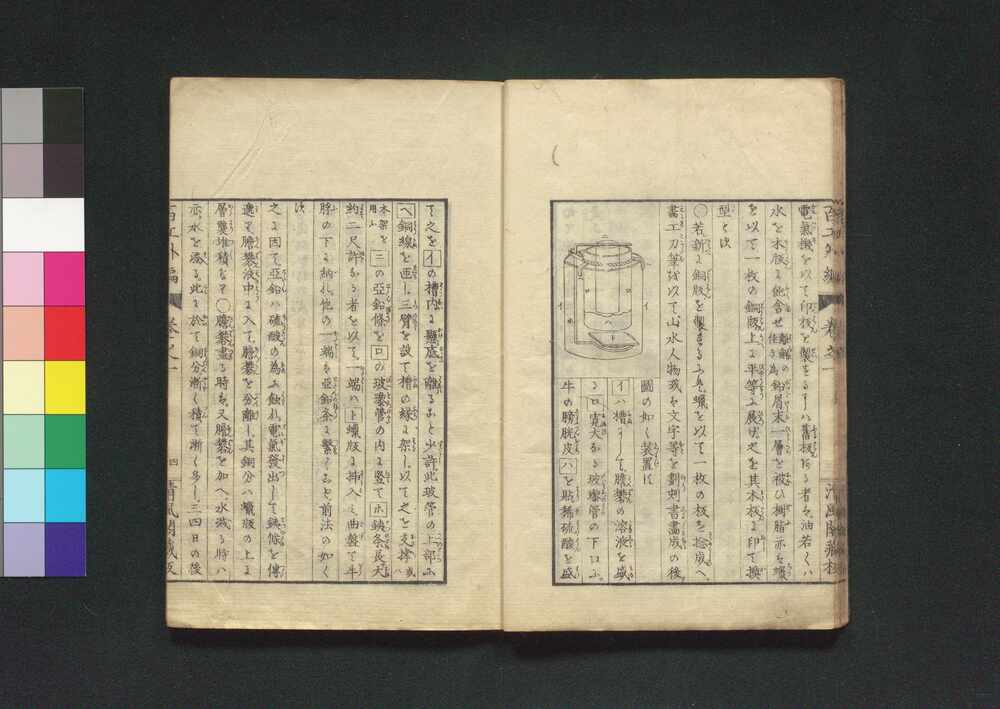 電氣機を以て印板を製するには舊板ある者は油若くは
水を木版に飽含せ
一層を被ひ樹脂亦は蠟
を以て一枚の銅版上に平等に展べ之を其木板に印て換
型とす
○若新に銅版を製するには先蠟を以て一枚の板を捻成し
畫工刀等を以て山水人物或は文字等を劃刻書畫成の後
圖の如く裝置す
イは槽にして膽礬の溶液を盛
るロ寛大なる玻瓈管の下口に
牛の膀胱皮ハを貼稀硫酸を盛
イ
イ
ロ
ハ
て之をイの槽内に懸底を離ること少許此玻管の上部に
ヘ銅線を匝し三臂を設て槽の縁に架し以て之を支撑す或は
木架を
用ふ
ニの亞鉛條をロの玻瓈管の内に竪てホ鐵条長大
約二尺許なる者を以て一端はト蠟版に挿入し曲盤て牛
脬の下に納れ他の一端を亞鉛条に繋ぐこと前法の如く
す
之に因て亞鉛は硫酸の為に蝕れ電氣發出して鐵條を傳
進て膽礬液中に入て膽礬を分離し其銅分は蠟版の上に
層疊堆積なす○膽礬盡る時は又膽礬を加へ水減る時は
亦水を添る此に於て銅分漸く積て漸く多し三四日の後
百工外編
卷之一
四